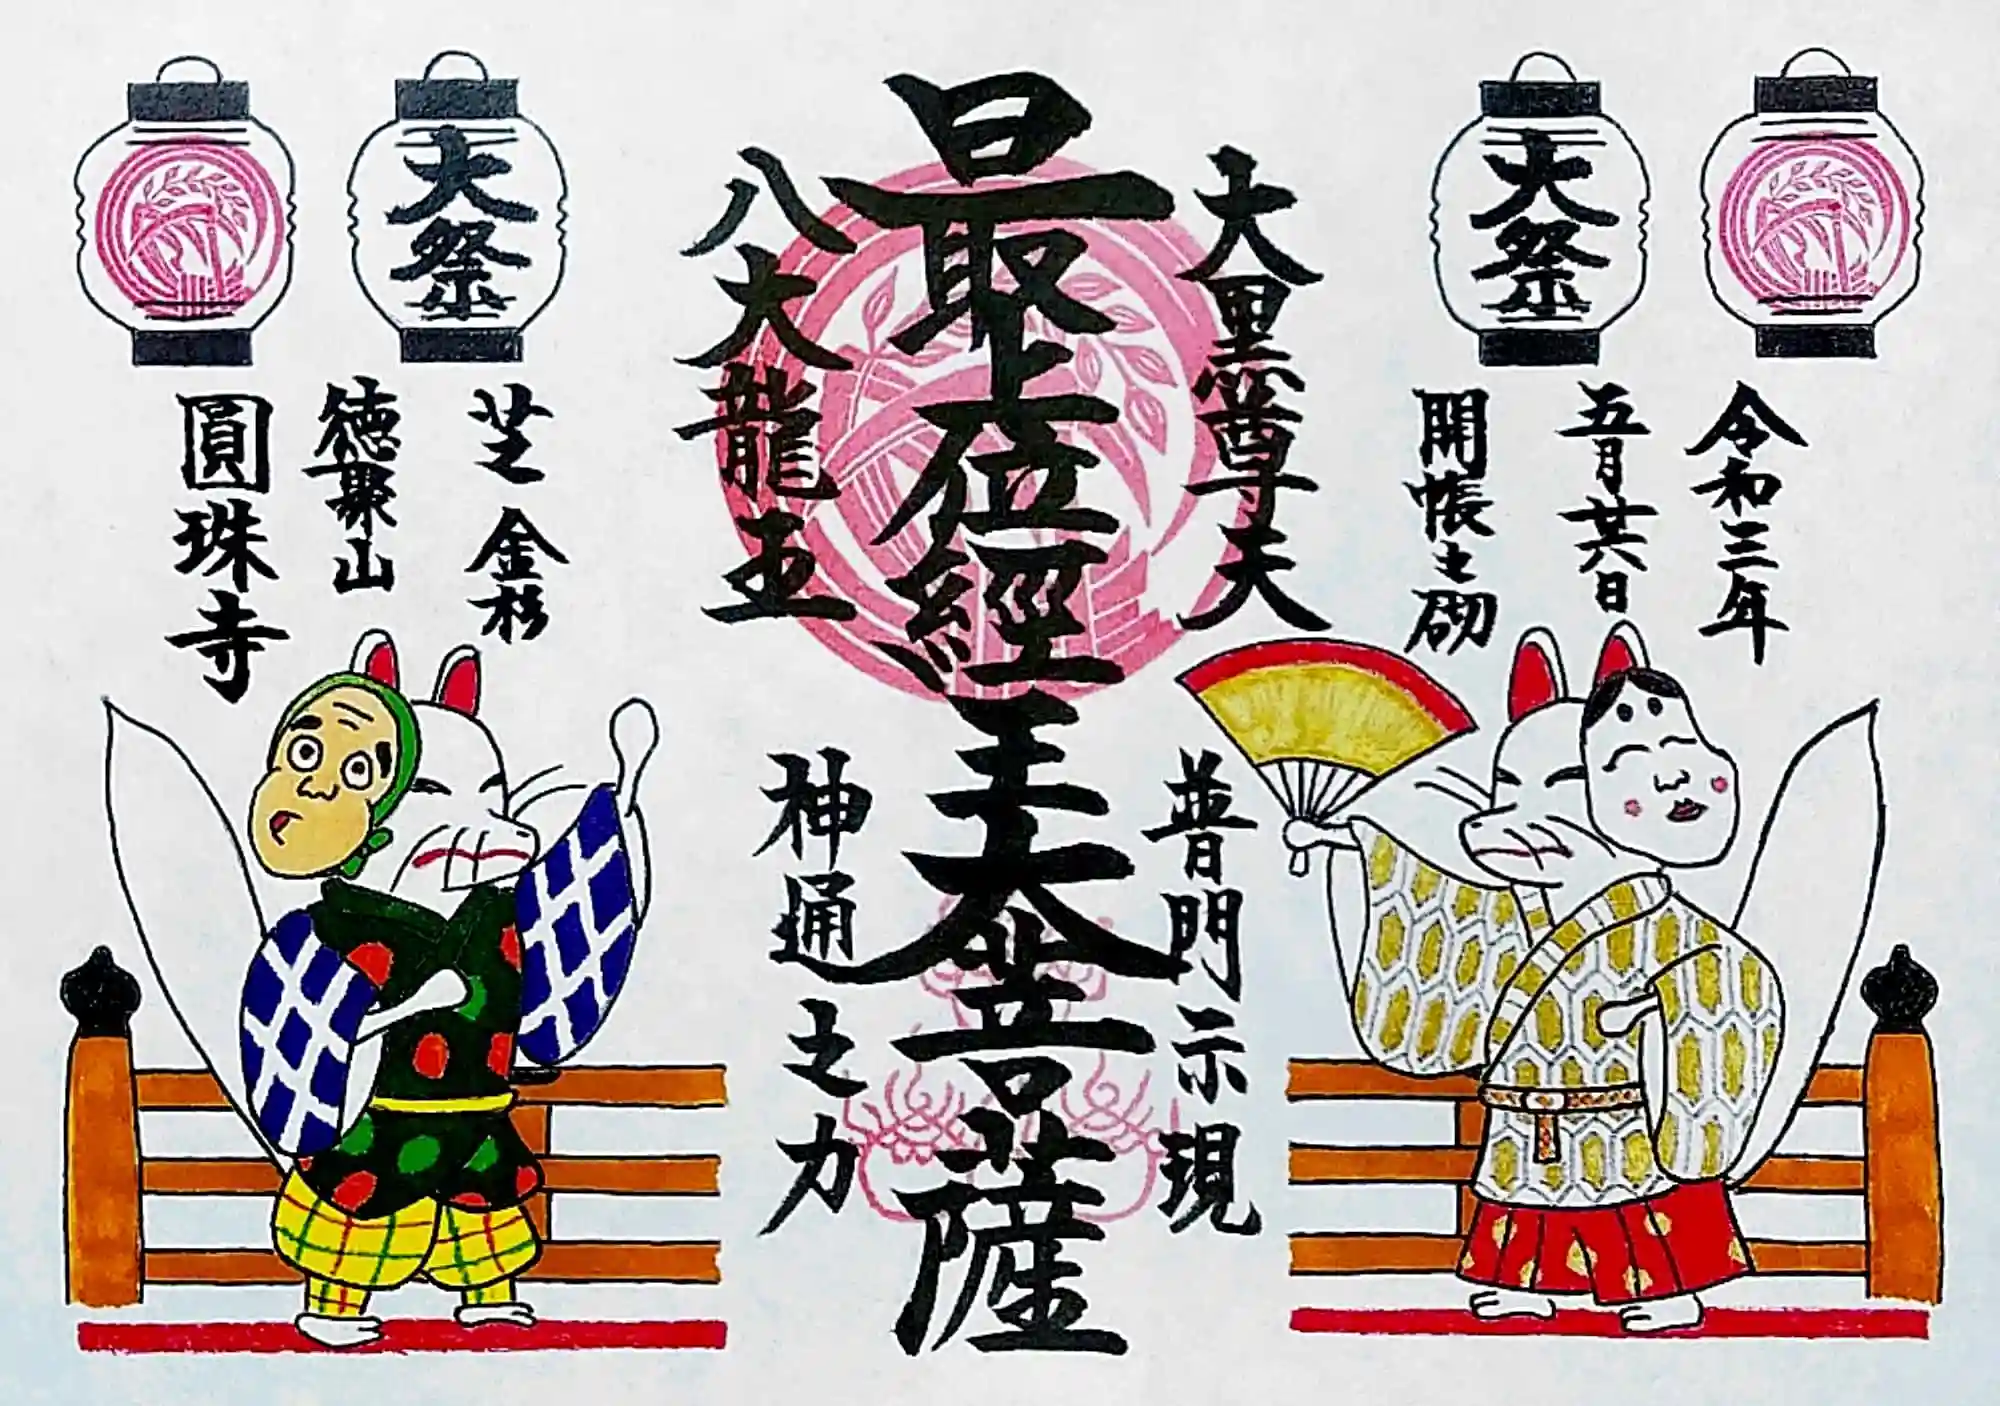 大祭
令和三年
五月廿六日
開帳之砌
大黒尊天
普門示現
最上位經王大菩薩
八大龍王
神通之力
大祭
芝金杉
徳聚山
圓珠寺